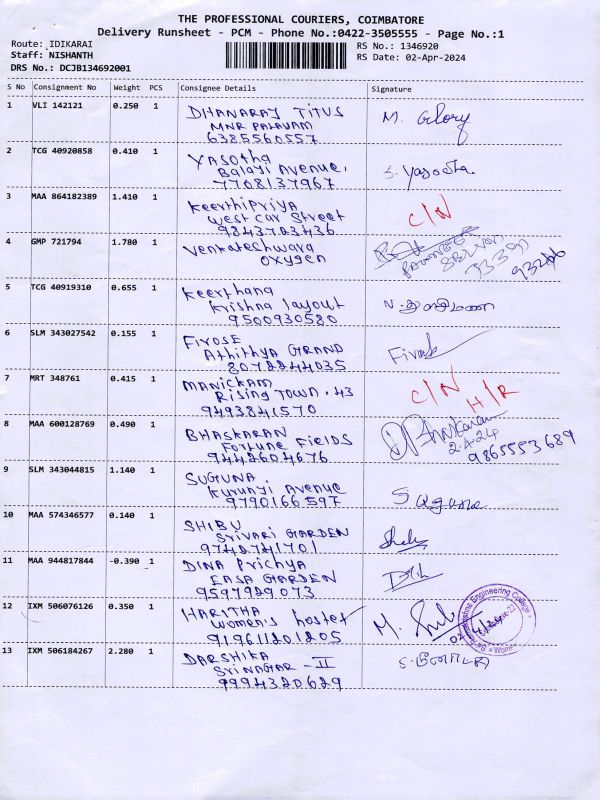 THE PROFESSIONAL COURIERS, COIMBATORE
Delivery Runsheet - PCM - Phone No.:0422-3505555 - Page No.:1
Route: IDIKARAI
Staff: NISHANTH
DRS No.: DCJB134692001
RS No.: 1346920
RS Date: 02-Apr-2024
S No Consignment No Weight PCS Consignee Details Signature
1 VLI 142121 0.250 1 DHANARAJ TITUS M. Glory
MNR PALAYAM
6385560557
2 TCG 40920858 0.410 1 YASOtha S. Yasotha
Balaji Avenue,
7708137967
3 MAA 864182389 1.410 1 KeerthiPriya C/N
West Car Street
9843723436
4 GMP 721794 1.780 1 Venkateshwara
OXYGEN
5 TCG 40919310 0.655 1 Keerthana
Krishna layout
9500930580
6 SLM 343027542 0.155 1 FIROSE
Athithya GRAND
8072244035
7 MRT 348761 0.415 1 MANICKAM C/N H/R
Rising TOWN, 43
9493841570
8 MAA 600128769 0.490 1 BHASKARAN
Fortune Fields 2-4-24
9442604676 9865553689
9 SLM 343044815 1.140 1 SUGUNA. Suguna
Kurunji Avenue
9790166597
10 MAA 574346577 0.140 1 SHIBU
Srivari GARDEN
9742741701
11 MAA 944817844 -0.390 1 DINA Prichya
EASA GARDEN
9597929073
12 IXM 506076126 0.350 1 HARITHA
Women's hostel
919611201205
Engineering College
13 IXM 506184267 2.280 1 DARSHIKA
Sri NAGAR - II
9994320629